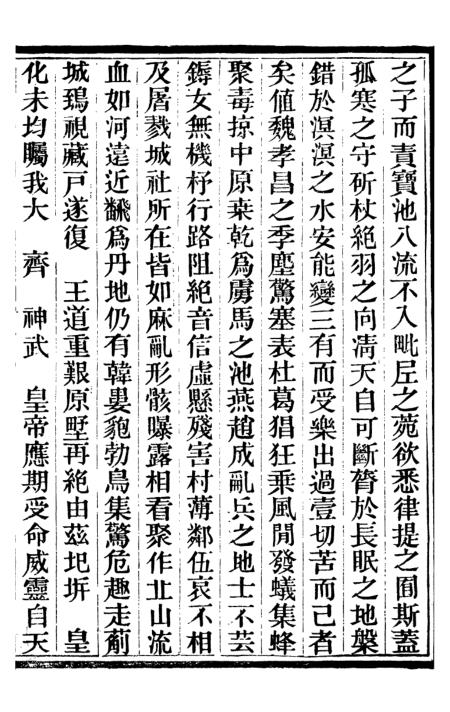 之子而責寶池八流不入毗𡰱之菀欲悉律提之囿斯蓋
孤寒之守斫杖絕羽之向淸天自可斷膂於長眠之地槃
錯於溟溟之水安能變三有而受樂出過壹切苦而已者
矣値魏孝昌之季塵驚塞表杜葛猖狂乘風閒發蟻集蜂
聚毒掠中原桒乾爲虜馬之池燕趙成亂兵之地士不芸
鎒女無機杼行路阻絕音信虛懸殘害村薄鄰伍哀不相
及屠戮城社所在皆如麻亂形骸曝露相看聚作丠山流
血如河遠近翻爲丹地仍有韓婁豞勃鳥集驚危趣走薊
城鵄視藏戸遂復　王道重艱原墅再絕由茲圯坼　皇
化未均矚我大　齊　神武　皇帝應期受命威靈自天